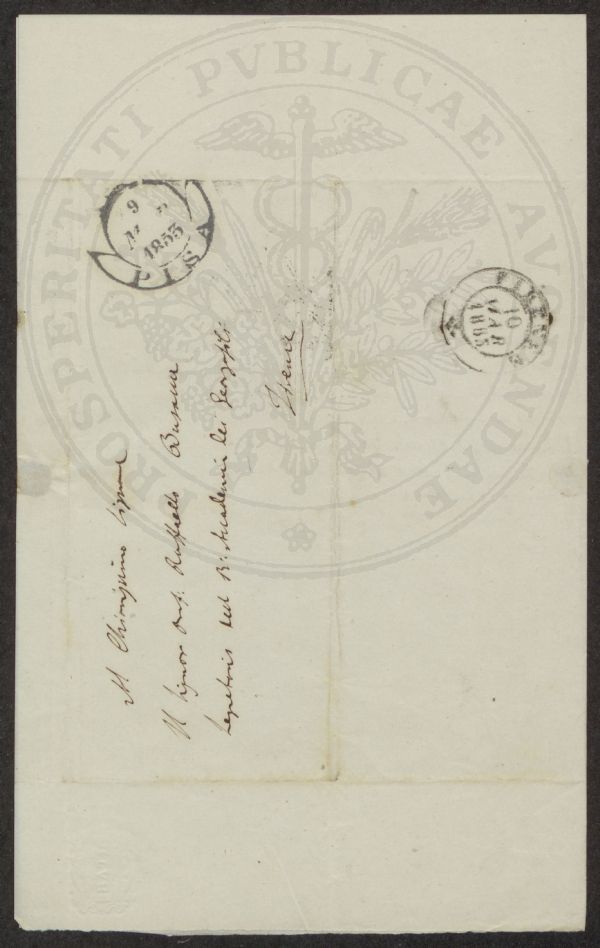 PROSPERITATI PVBLICAE AVGENDAE
9
1853
PISA
10
MAR
1853
Al Chiarissimo Signore
Il Signor Raffaello
Segretario dell' R: Accademia dei Georgofili
Firenze